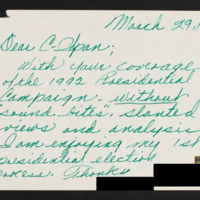 March 29, 1
Dear C-Span;
With your coverage
of the 1992 Presidential
Campaign, without
sound bites", slanted
views and analysis
I am enjoying my 1st
presidential election
process. Thanks